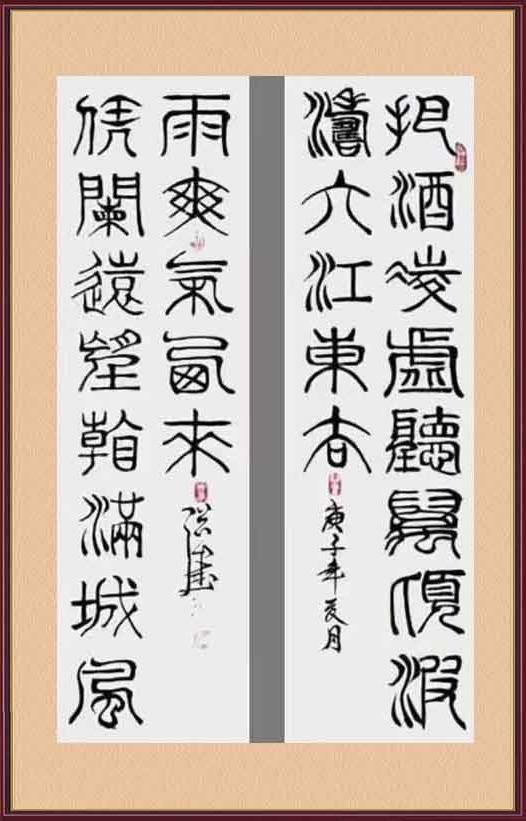 把酒凌虛聽萬頃波
濤大江東去
庚子年夏月
倚闌遠望看滿城風
雨爽氣西來